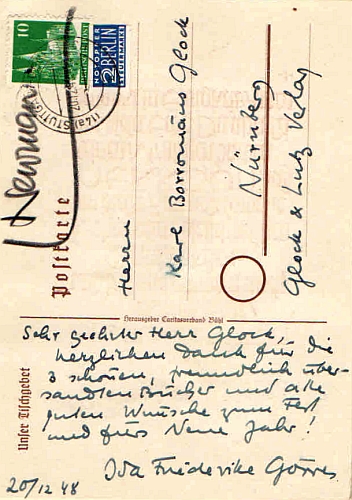 10
NOTOPFER
2 BERLIN
STEUERMARKE
(14a) STUTTG
Newman
Postkarte
Herrn
Karl Borromäus Glock
Nürnberg
Glock & Lutz Verlag
Herausgeber Caritasverband Bühl
Unser Tischgebet
Sehr geehrter Herr Glock,
herzlichen Dank für die
3 schönen, freundlich über-
sandten Bücher und alle
guten Wünsche zum Fest
und fürs Neue Jahr!
Ida Friederike Görres
20/12 48